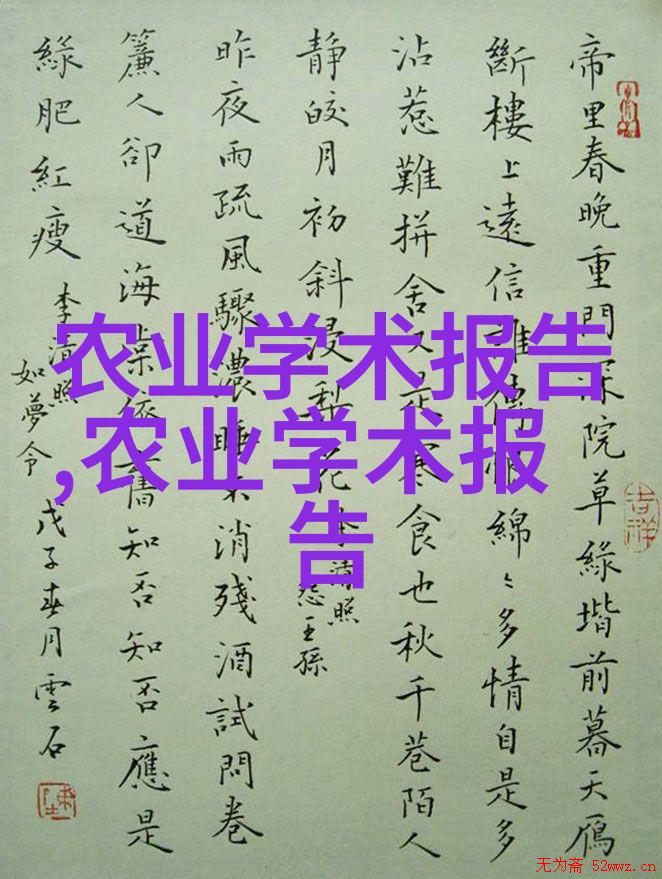 帝里春晚重門深院草緑堦前暮天鴈
斷樓上遠信誰傳恨綿〻多情自是多
沾惹難拼舍又是寒食也秋千巷陌人
静皎月初斜浸梨花 李清照
怨王孫
昨夜雨疏風驟濃睡不消殘酒試問卷
簾人卻道海棠依舊知否知否應是
緑肥紅瘦 李清照
如夢令 戊子春月雲石
农业学术报告
,农业学术报
告
吉祥
无为斋 52wwz.cn